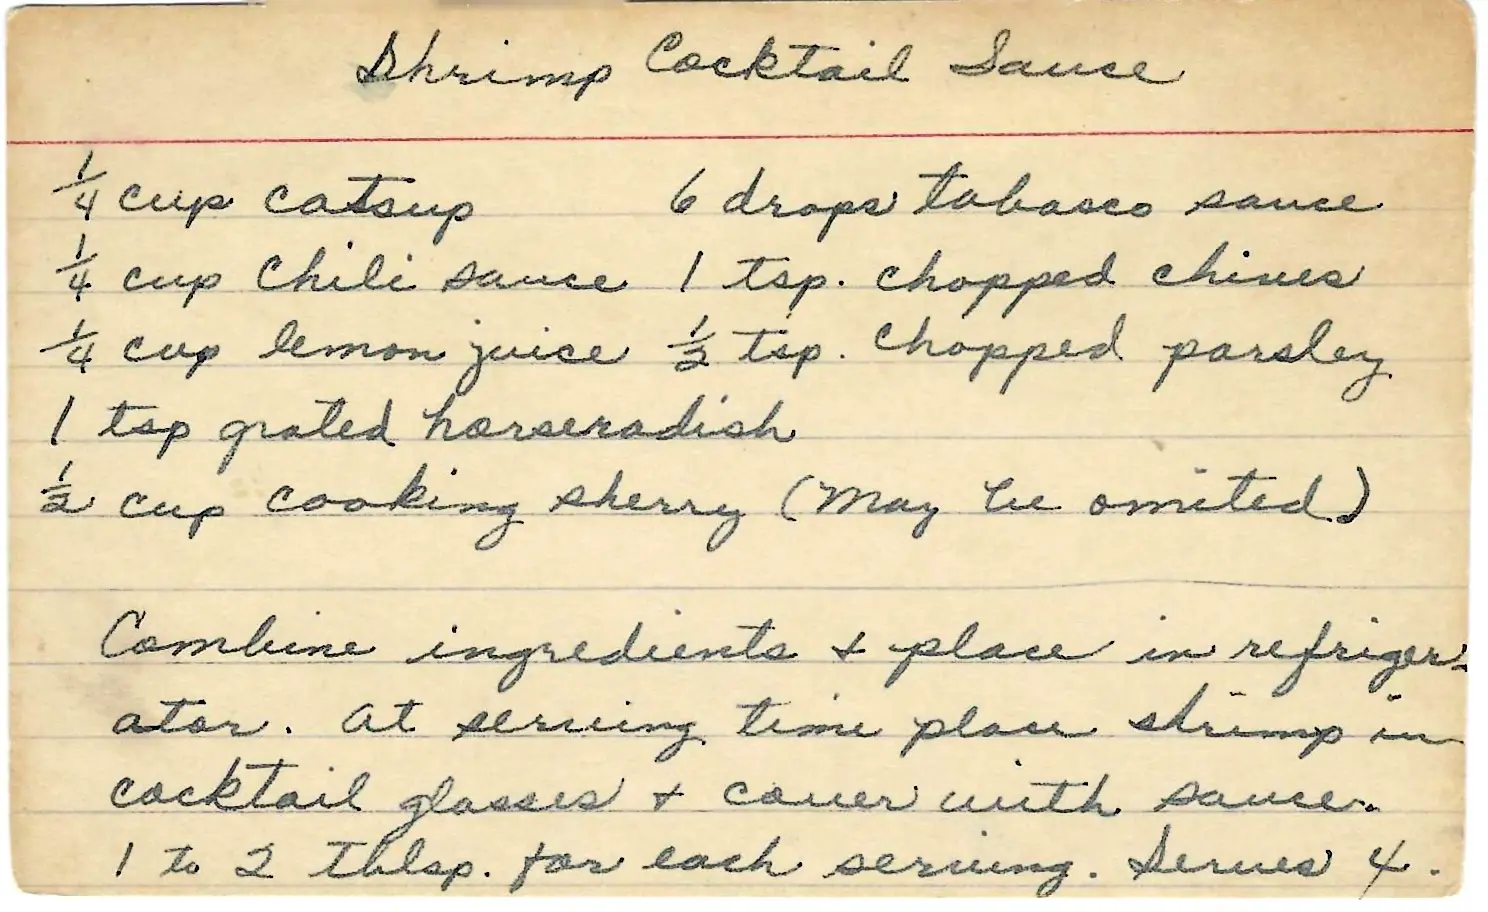 Shrimp Cocktail Sauce
1/4 cup catsup 6 drops tabasco sauce
1/4 cup Chili sauce 1 tsp. chopped chives
1/4 cup lemon juice 1/2 tsp. Chopped parsley
1 tsp grated horseradish
1/2 cup cooking sherry (May be omited)
Combine ingredients + place in refriger-
ator. At serving time place shrimp in
cocktail glasses + cover with sauce.
1 to 2 Tblsp. for each serving. Serves 4.